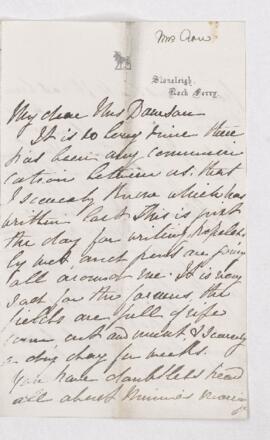 Mrs Crow
Stoneleigh,
Rock Ferry.
My dear Mrs Dawson
It is so long since there
has been any communi
cation between us, that
I scarcely know which has
written last This is just
the day for writing hopelessly
wet and pens are going
all around me. It is very
sad for the farmers, the
fields are full of ripe
corn, cut and uncut & scarcely
a dry day for weeks.
You have doubtless heard
all about Minnie's marriage